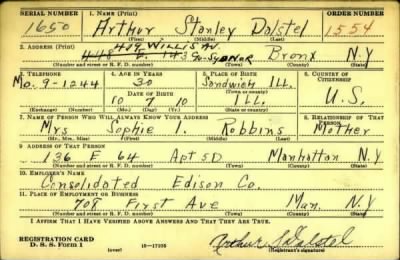 SERIAL NUMBER 1. NAME (Print) ORDER NUMBER
1650 Arthur Stanley Dalstel 1554
(First) (Middle) (Last)
419 WILLIS AV.
2. ADDRESS (Print)
143 Bronx N.Y
(Number and street or R. F. D. number) (Town) (County) (State)
3. TELEPHONE 4. AGE IN YEARS 5. PLACE OF BIRTH 6. COUNTRY OF CITIZENSHIP
MO. 9-1244 30 Sandwich ILL.
DATE OF BIRTH (Town or county)
10 7 10 ILL. U.S.
(Exchange) (Number) (Mo.) (Day) (Yr.) (State or country)
7. NAME OF PERSON WHO WILL ALWAYS KNOW YOUR ADDRESS 8. RELATIONSHIP OF THAT PERSON
Mrs Sophie I. Robbins Mother
(Mr., Mrs., Miss) (First) (Middle) (Last)
9. ADDRESS OF THAT PERSON
136 E 64 Apt 5D Manhattan N.Y
(Number and street or R. F. D. number) (Town) (County) (State)
10. EMPLOYER'S NAME
Consolidated Edison Co.
11. PLACE OF EMPLOYMENT OR BUSINESS
708 First Ave Man. N.Y
(Number and street or R. F. D. number) (Town) (County) (State)
I AFFIRM THAT I HAVE VERIFIED ABOVE ANSWERS AND THAT THEY ARE TRUE.
REGISTRATION CARD
D. S. S. FORM 1 (over) 16—17105 Arthur S Dalstel
(Registrant's signature)